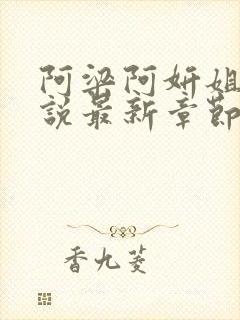 阿梁阿妍姐
説最新章節
香九菱